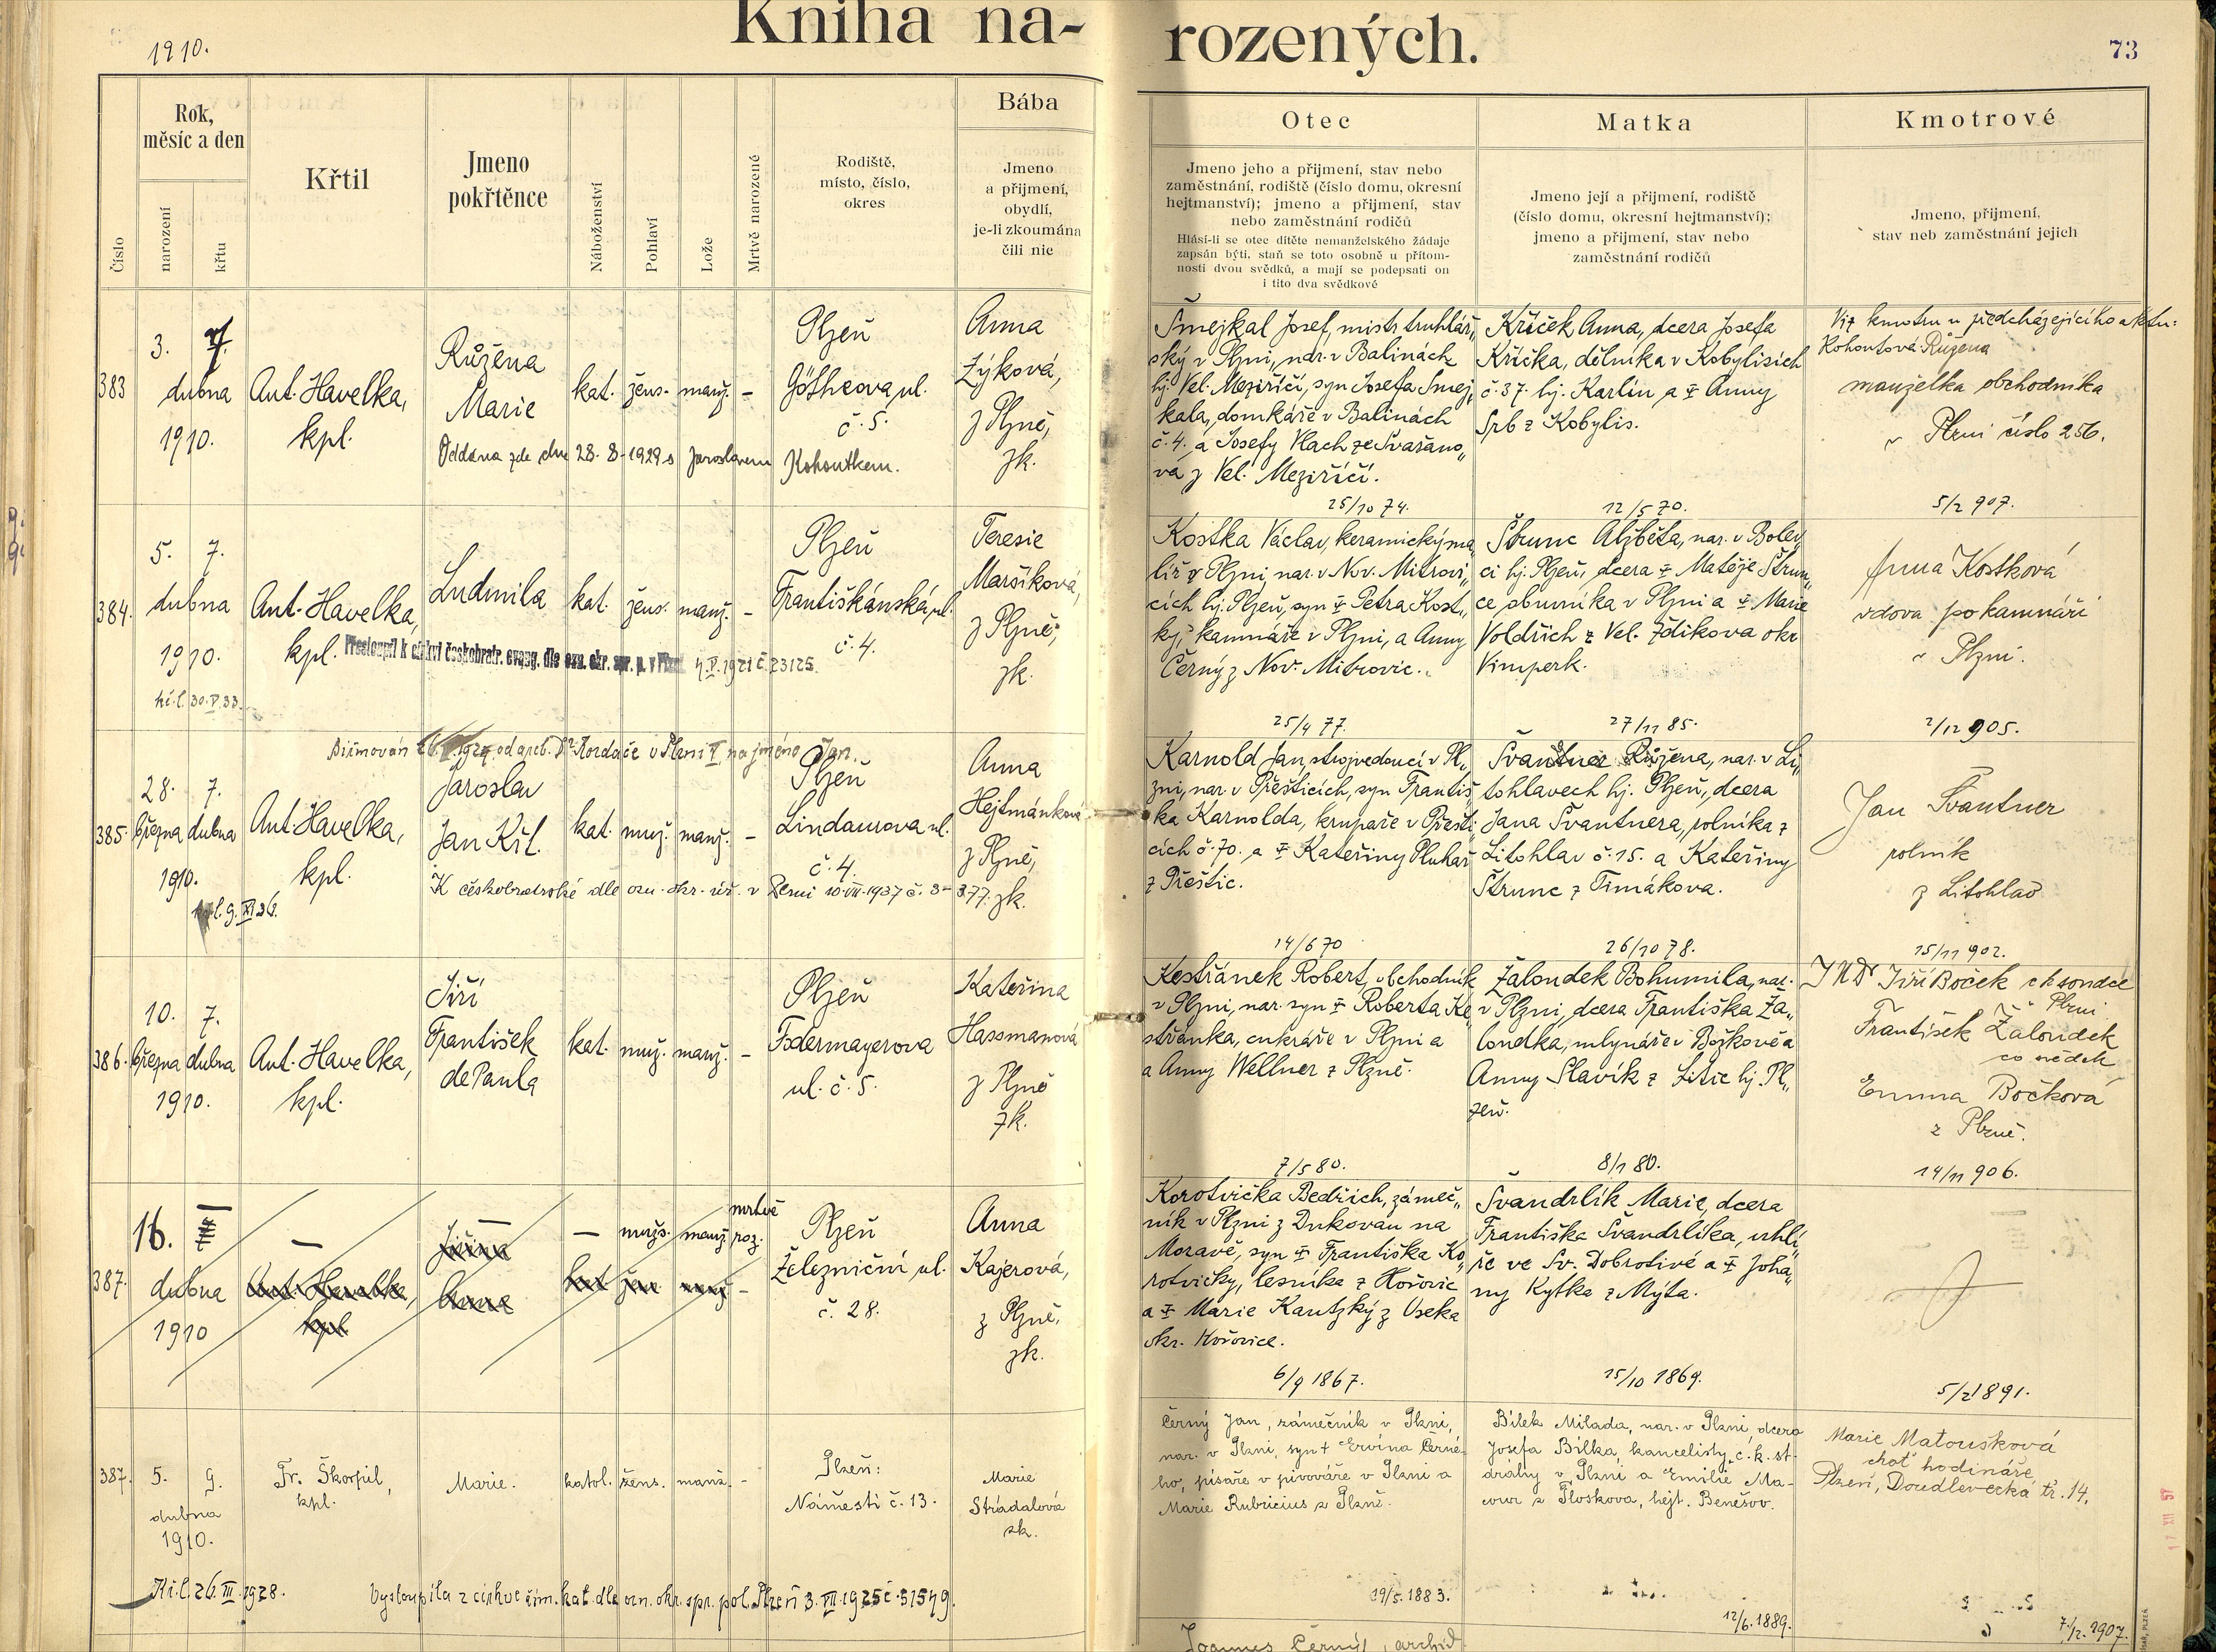 1910.
Kniha na-
rozených.
73
Číslo
Rok,
měsíc a den
narození
křtu
Křtil
Jmeno
pokřtěnce
Náboženství
Pohlaví
Lože
Mrtvě narozené
Rodiště,
místo, číslo,
okres
Bába
Jmeno
a přijmení,
obydlí,
je-li zkoumána
čili nic
Otec
Jmeno jeho a přijmení, stav nebo
zaměstnání, rodiště (číslo domu, okresní
hejtmanství); jmeno a přijmení, stav
nebo zaměstnání rodičů
Hlásí-li se otec dítěte nemanželského žádaje
zapsán býti, staň se toto osobně u přítom-
nosti dvou svědků, a mají se podepsati on
i tito dva svědkové
Matka
Jmeno její a přijmení, rodiště
(číslo domu, okresní hejtmanství);
jmeno a přijmení, stav nebo
zaměstnání rodičů
Kmotrové
Jmeno, přijmení,
stav neb zaměstnání jejich
383
3. 7.
dubna
1910.
Ant. Havelka,
kpl.
Růžena
Marie
kat.
žens.
manž.
-
Plzeň
Götheova ul.
č. 5.
Anna
Zýková,
z Plzně,
zk.
Oddána zde dne 28. 8. 1929 s Jaroslavem Kohoutkem.
Šmejkal Josef, mistr truhlář„
ský v Plzni, nar. v Balinách
hj. Vel. Meziříčí, syn Josefa Šmej„
kala, domkáře v Balinách
č. 4. a Josefy Vlach ze Svařano„
va z Vel. Meziříčí.
25/10 74.
Kříček Anna, dcera Josefa
Kříčka, dělníka v Kobylisích
č. 37. hj. Karlín a ‡ Anny
Srb z Kobylis.
12/5 70.
Viz kmotru u předcházejícího aktu:
Kohoutová Růžena
manželka obchodníka
v Plzni číslo 256.
5/2 907.
384.
5. 7.
dubna
1910.
Ant. Havelka,
kpl.
Ludmila
kat.
žens.
manž.
-
Plzeň
Františkánská ul.
č. 4.
Teresie
Maršíková,
z Plzně,
zk.
Přestoupil k církvi českobratr. evang. dle ozn. okr. spr. p. v Plzni 4. V. 1921 č. 23125.
kř. l. 30. V. 33.
Kostka Václav, keramický ma„
líř v Plzni, nar. v Nov. Mitrovi„
cích hj. Plzeň, syn ‡ Petra Kost„
ky, kamnáře v Plzni, a Anny
Černý z Nov. Mitrovic.
25/4 77.
Štrunc Alžběta, nar. v Bolev„
ci hj. Plzeň, dcera ‡ Matěje Štrun„
ce obuvníka v Plzni a ‡ Marie
Voldřich z Vel. Zdíkova okr
Vimperk.
27/11 85.
Anna Kostková
vdova po kamnáři
v Plzni.
2/12 905.
385.
28. 7.
března dubna
1910.
Ant. Havelka,
kpl.
Jaroslav
Jan Křt.
kat.
muž.
manž.
-
Plzeň
Lindaurova ul.
č. 4.
Anna
Hejtmánková
z Plzně,
zk.
K českobratrské dle ozn. okr. úř. v Plzni 10. VII. 1937 č. 3-377.
Karnold Jan, strojvedoucí v Pl„
zni, nar. v Přešticích, syn Františ„
ka Karnolda, krupaře v Přešti„
cích č. 70. a ‡ Kateřiny Pluhař
z Přeštic.
14/6 70
Švantner Růžena, nar. v Li„
tohlavech hj. Plzeň, dcera
Jana Švantnera, rolníka z
Litohlav č. 15. a Kateřiny
Štrunc z Timákova.
26/10 78.
Jan Švantner
rolník
z Litohlav
15/11 902.
386.
10. 7.
března dubna
1910.
Ant. Havelka,
kpl.
Jiří
František
de Paula
kat.
muž.
manž.
-
Plzeň
Fodermayerova
ul. č. 5.
Kateřina
Hassmanová
z Plzně
zk.
Kestřánek Robert, obchodník
v Plzni, nar. syn ‡ Roberta Ke„
střánka, cukráře v Plzni a
a Anny Wellner z Plzně.
7/5 80.
Žaloudek Bohumila, nar.
v Plzni, dcera Františka Ža„
loudka, mlynáře v Božkově a
Anny Slavík z Litic hj. Pl„
zeň.
8/1 80.
Jiří Boček
Plzni
František Žaloudek
co svědek
Emma Bočková
z Plzně.
14/11 906.
387.
16.
dubna
1910
Ant. Havelka,
kpl
Jiřina
Anna
muž.
manž.
mrtvě
roz.
kat
žen
manž
-
Plzeň
Železniční ul.
č. 28.
Anna
Kajerová,
z Plzně,
zk.
Korotvička Bedřich, zámeč„
ník v Plzni z Dukovan na
Moravě, syn ‡ Františka Ko„
rotvičky, lesníka z Hořovic
a ‡ Marie Kautzký z Oseka
okr. Hořovice.
6/9 1867.
Švandrlík Marie, dcera
Františka Švandrlíka, uhlí„
ře ve Sv. Dobrotivé a ‡ Joha„
ny Kytka z Mýta.
15/10 1869.
5/2 1891.
387.
5. 9.
dubna
1910.
Fr. Škorpil,
kpl.
Marie.
katol.
žens.
manž.
-
Plzeň:
Náměstí č. 13.
Marie
Strádalová
zk.
Kř. l. 26. III. 1928.
Vystoupila z církve řím. kat. dle ozn. okr. spr. pol. Plzeň 3. VII. 1925 č. 51549.
Černý Jan, zámečník v Plzni,
nar. v Plzni, syn † Ervína Černé-
ho, písaře v pivováře v Plzni a
Marie Rubricius z Plzně.
19/5. 1883.
Bílek Milada, nar. v Plzni, dcera
Josefa Bílka, kancelisty c. k. st.
dráhy v Plzni a Emilie Ma-
z Ploskova, hejt. Benešov.
12/6. 1889.
Marie Matoušková
choť hodináře,
Plzeň, Doudlevecká tř. 14.
7/2. 1907.
Joannes Černý, archid